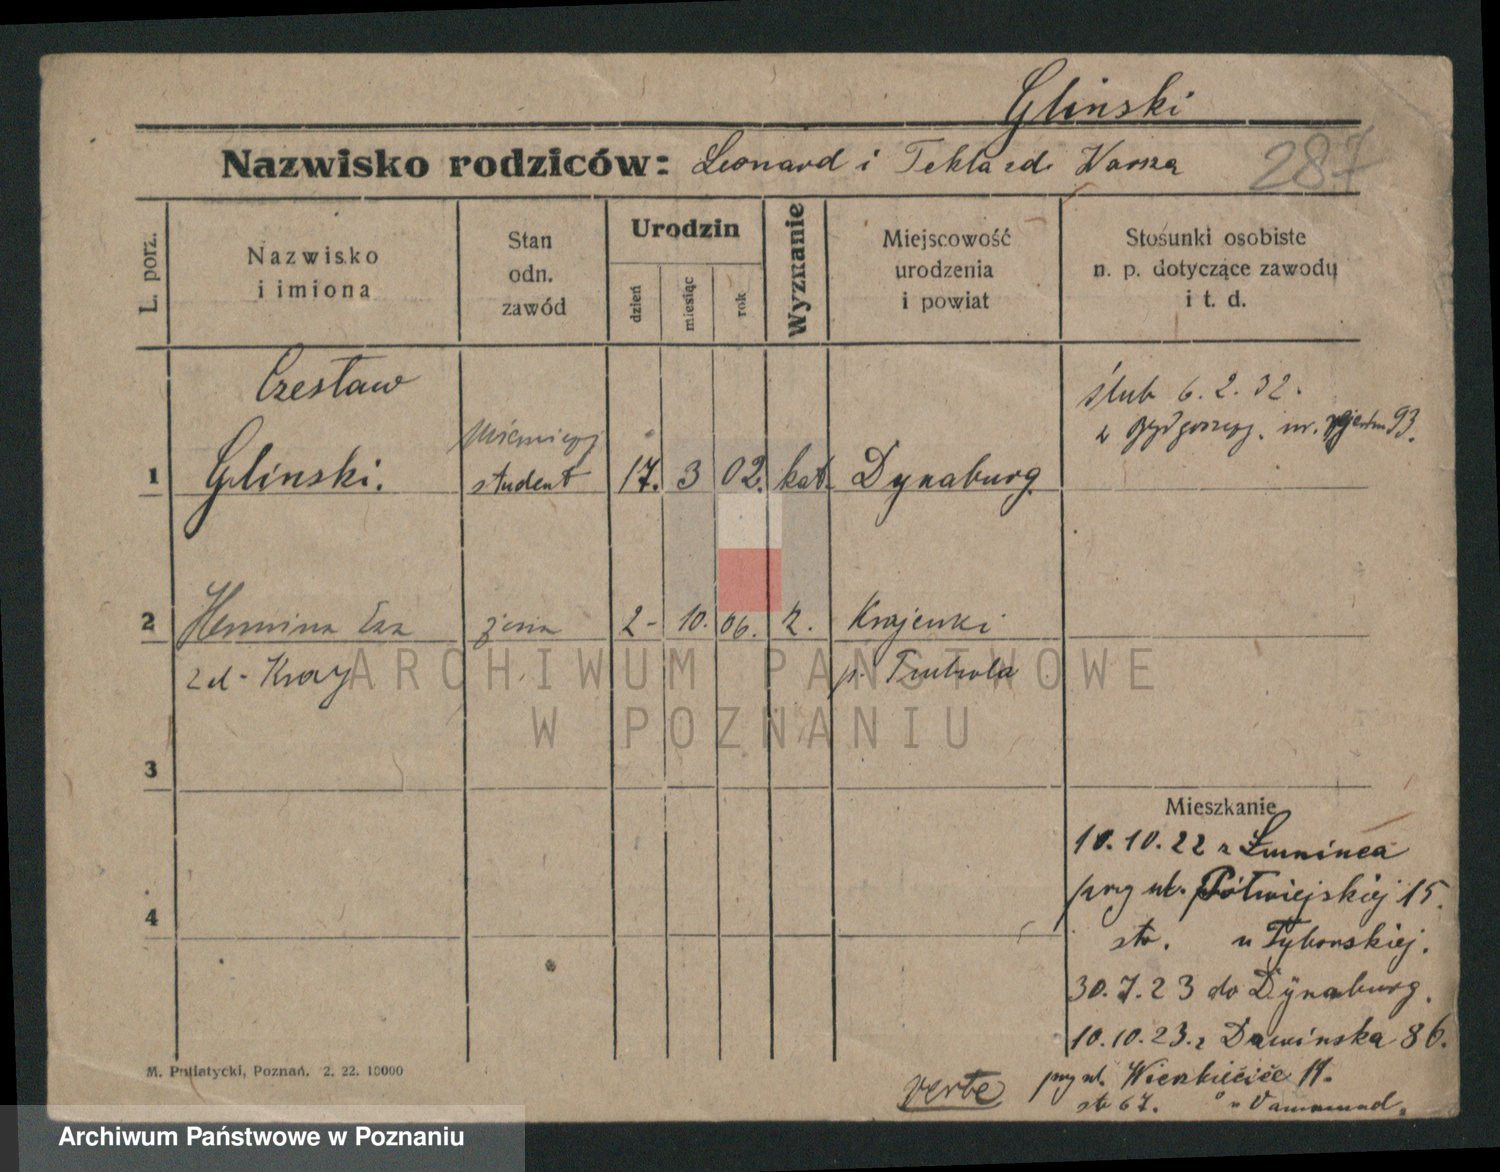 Gliński
Nazwisko rodziców: Leonard i Tekla zd. Warsza
287
L. porz.
Nazwisko
i imiona
Stan
odn.
zawód
Urodzin
dzień
miesiąc
rok
Wyznanie
Miejscowość
urodzenia
i powiat
Stosunki osobiste
n. p. dotyczące zawodu
i t. d.
Czesław
1 Gliński. student 17. 3 02. kat. Dynaburg.
ślub 6.2.32.
w Bydgoszczy. nr. rejestru 93.
2 Hermina żona 2- 10. 06. Krajenki
zd- Kray p.
3
4
Mieszkanie
10.10.22 z Łunińca
przy ul. Półwiejskiej 15.
str. u Tyborskiej.
30.7.23 do Dynaburg.
10.10.23. z Dźwińska 86.
przy ul. Wierzbięcice 11.
verte
M. Putiatycki, Poznań. 2. 22. 10000
ARCHIWUM PAŃSTWOWE
W POZNANIU
Archiwum Państwowe w Poznaniu